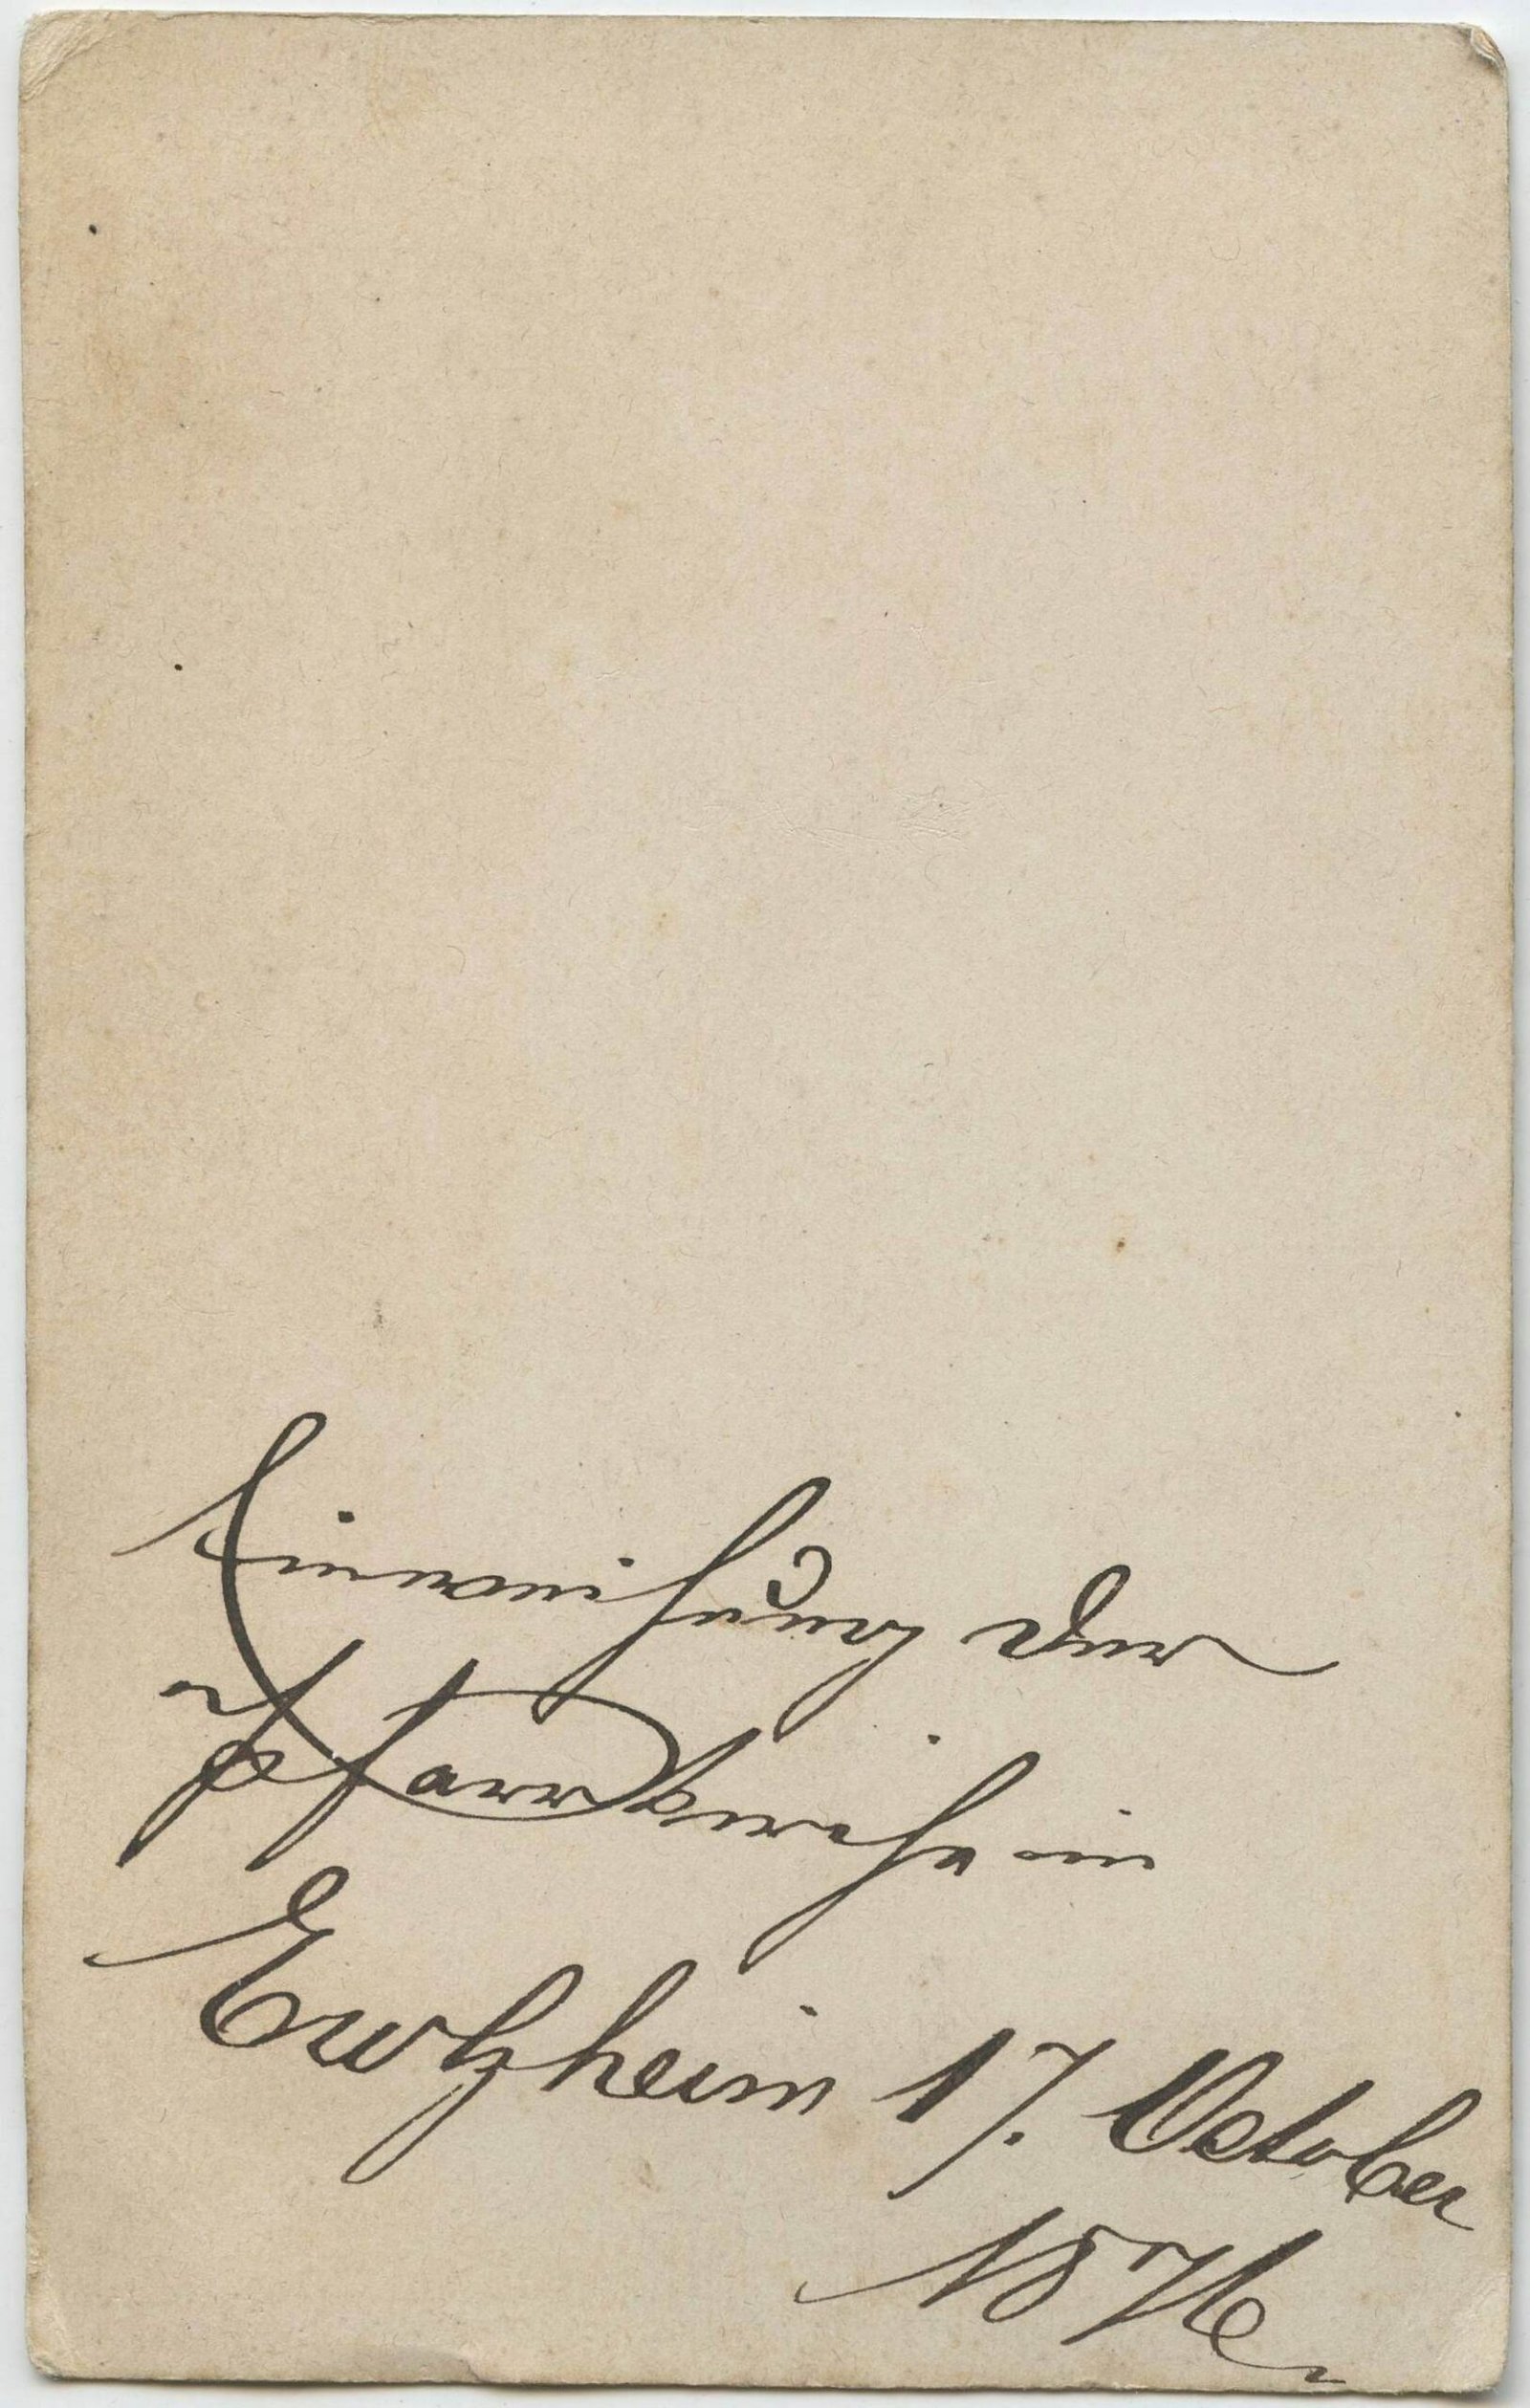 Einweihung der
Pfarrkirche in
17. October
1876